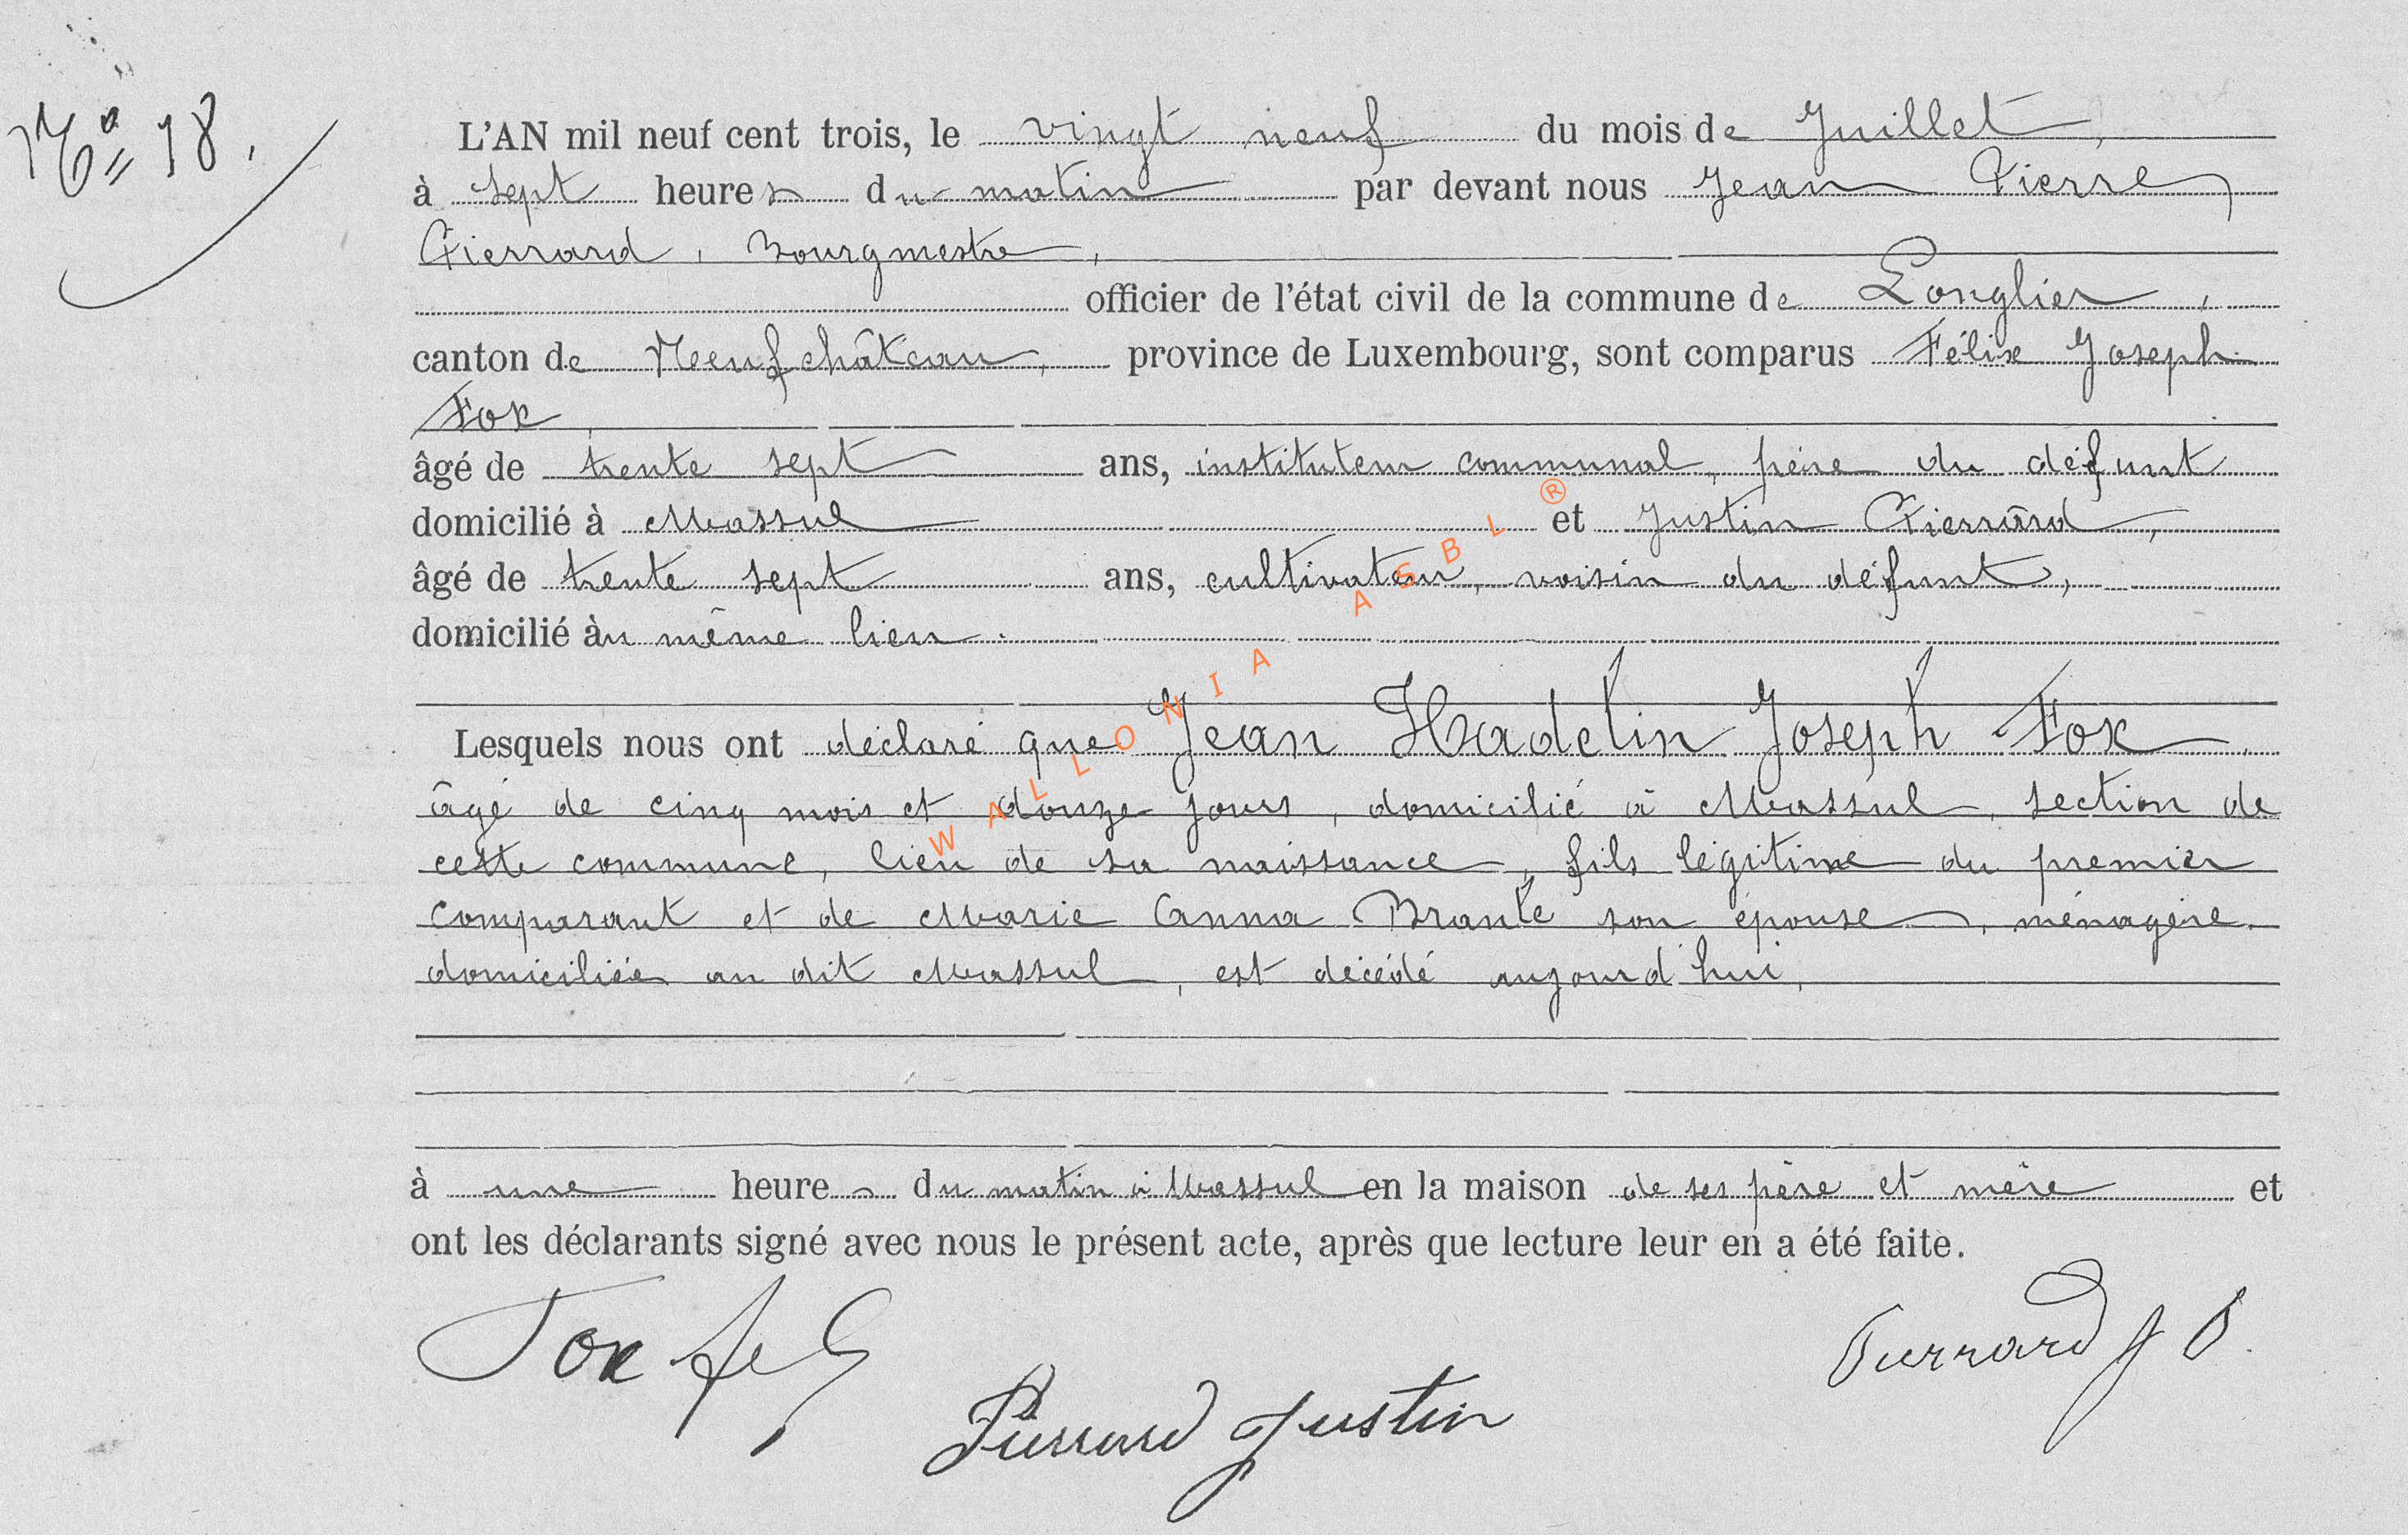 N° 18.
L'AN mil neuf cent trois, le vingt neuf du mois de Juillet,
à sept heures du matin par devant nous Jean Pierre
Pierrard, Bourgmestre,
officier de l'état civil de la commune de Longlier,
canton de Neufchâteau, province de Luxembourg, sont comparus Félix Joseph
Fox,
âgé de trente sept ans, instituteur communal, père du défunt
domicilié à Massul et Justin Pierrard,
âgé de trente sept ans, cultivateur, voisin du défunt,
domicilié àu même lieu.
Lesquels nous ont déclaré que Jean Hadelin Joseph Fox,
âgé de cinq mois et douze jours, domicilié à Massul, section de
cette commune, lieu de sa naissance, fils légitime du premier
comparant et de Marie Anna Branle son épouse, ménagère
domiciliée au dit Massul, est décédé aujourd'hui,
à une heure du matin à Massul en la maison de ses père et mère et
ont les déclarants signé avec nous le présent acte, après que lecture leur en a été faite.
Fox
Pierrard J P.
Pierrard Justin
WALLONIA ASBL ®